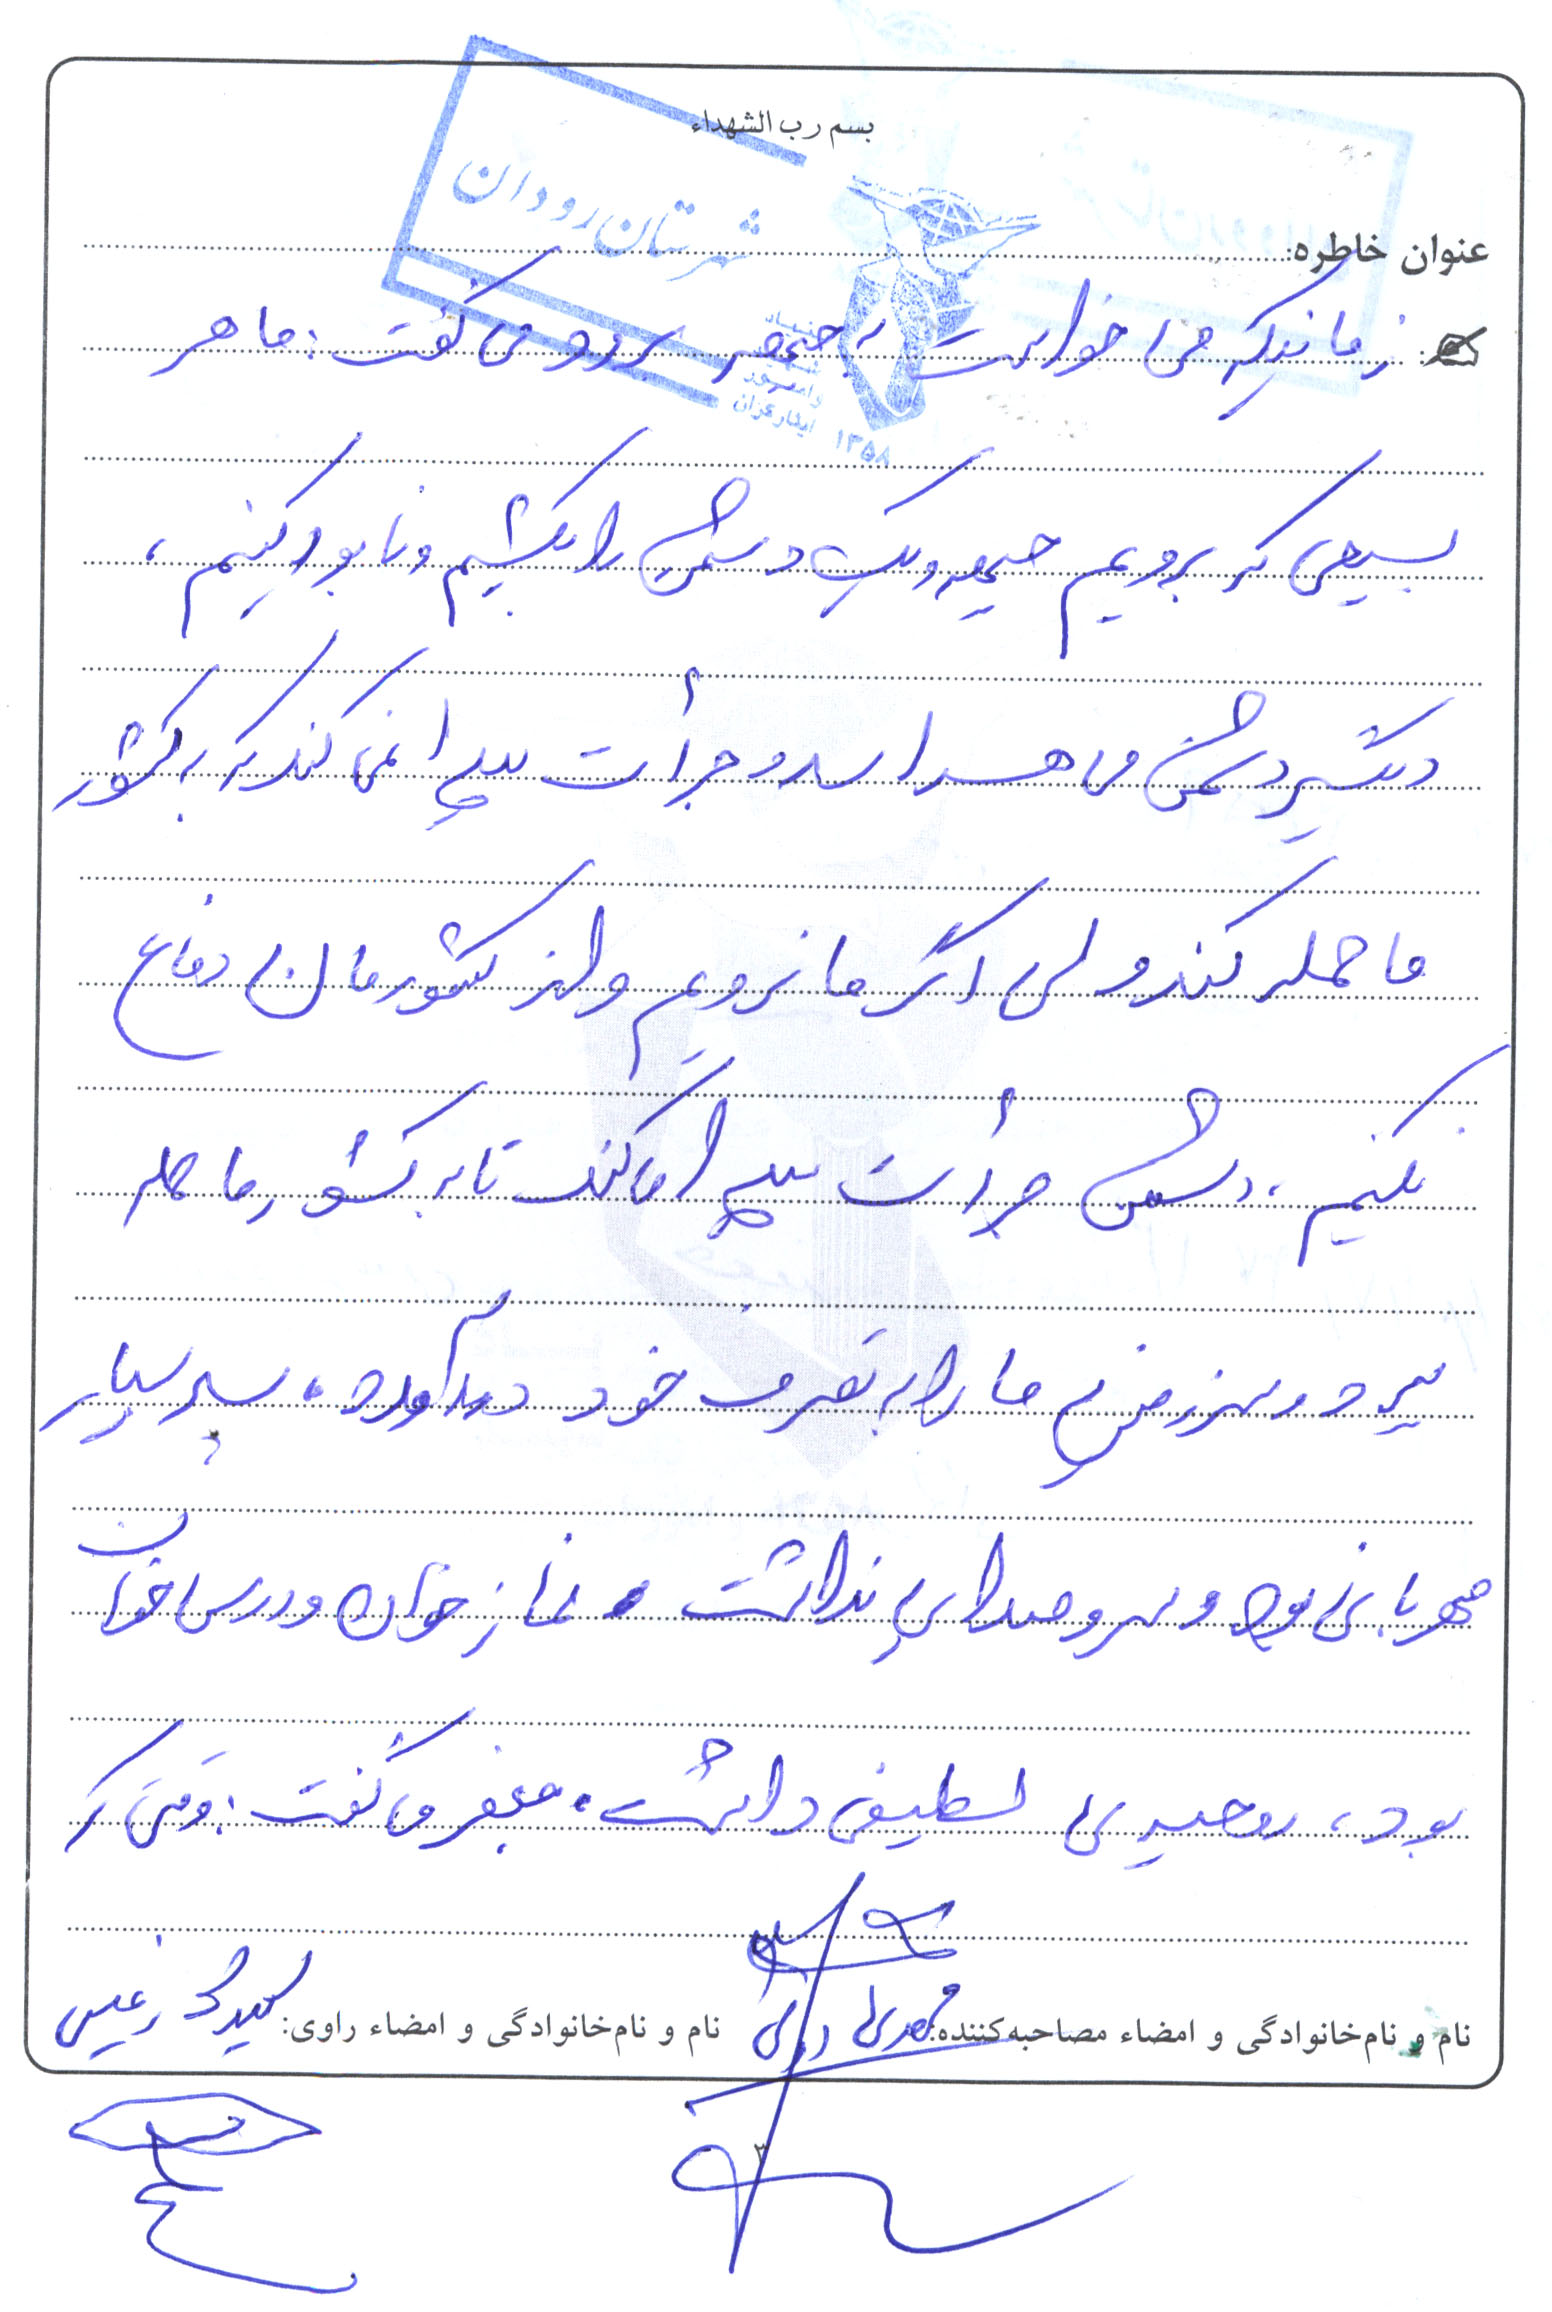 بسم رب الشهداء
شهرستان رودان
عنوان خاطره:
بنیاد شهید و امور ایثارگران
۱۳۵۸
زمانیکه می خواست به جبهه برود می گفت: ما هر
بسیجی که برویم جبهه و یک دشمن را بکشیم و نابود کنیم،
دیگر دشمن می هراسد و جرأت پیدا نمی کند که به کشور
ما حمله کند ولی اگر ما نرویم و از کشورمان دفاع
نکنیم، دشمن جرأت پیدا می کند تا به کشور ما حمله
ببرد و سرزمین ما را به تصرف خود در بیاورد. پسر بسیار
مهربانی بود و سر و صدایی نداشت. نماز خوان و درس خوان
بود، روحیه ی لطیفی داشت. جعفر می گفت: وقتی که
نام و نام‌خانوادگی و امضاء مصاحبه‌کننده:
نام و نام‌خانوادگی و امضاء راوی:
۲